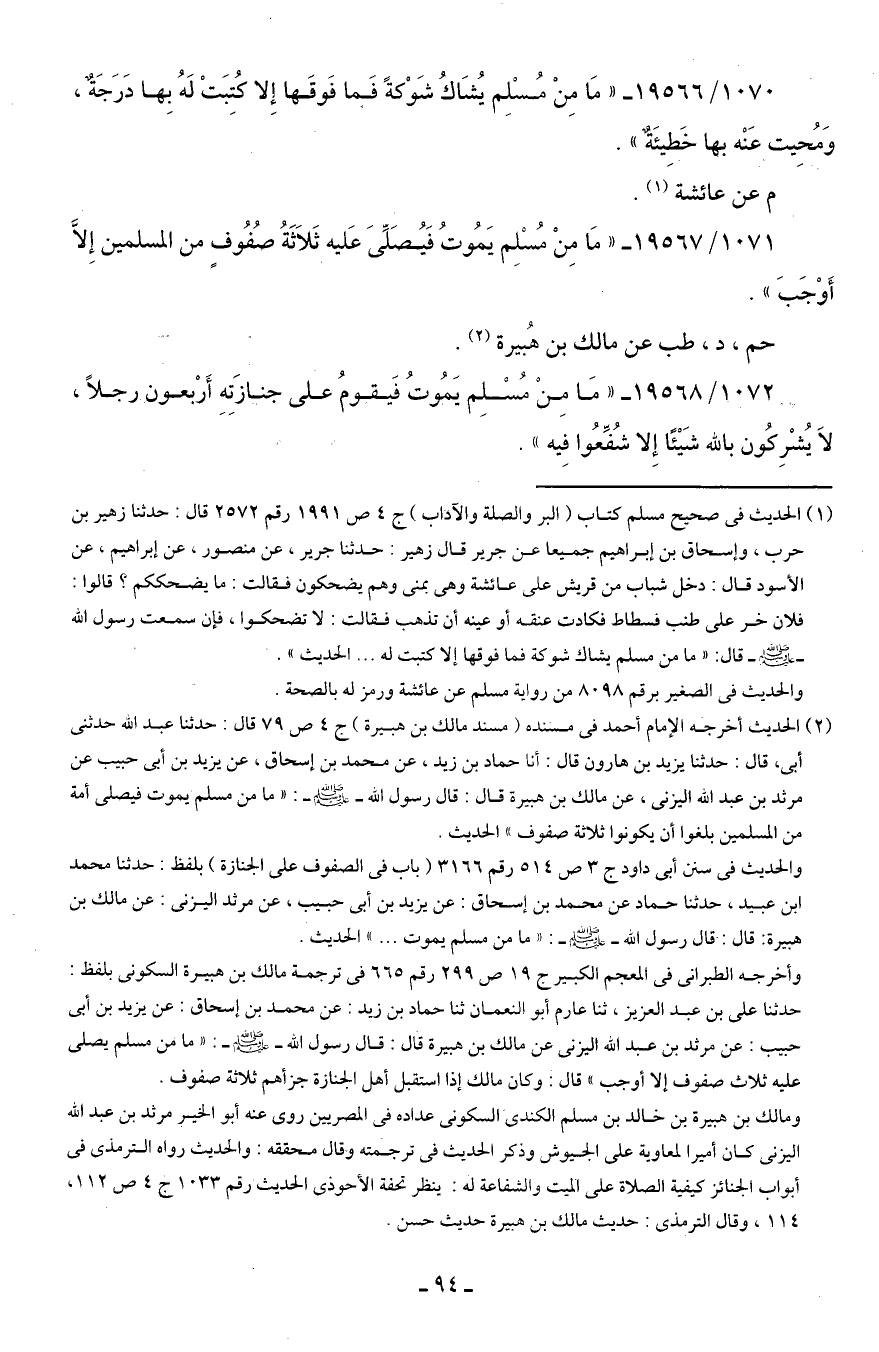 ١٠٧٠/ ١٩٥٦٦ـ « مَا مِنْ مُسْلِم يُشَاكُ شَوْكَةً فَما فَوقَها إِلا كُتِبَتْ لَهُ بِها دَرَجَةٌ ،
وَمُحِيت عَنْه بِها خَطِيئَةٌ » .
م عن عائشة (١) .
١٠٧١/ ١٩٥٦٧ـ « مَا مِنْ مُسْلِم يَمُوتُ فَيُصَلِّىَ عَليه ثَلاَثَةُ صفُوفٍ من المسلمين إِلاَّ
أَوْجَبَ » .
حم ، د ، طب عن مالك بن هُبيرة (٢) .
١٠٧٢/ ١٩٥٦٨ـ « مَا مِنْ مُسْلِم يَمُوتُ فَيَقومُ على جنازَتِه أَرْبعون رجلاً ،
لاَ يُشْرِكُون بالله شَيْئًا إِلا شُفِّعُوا فِيه » .
(١) الحديث فى صحيح مسلم كتاب ( البر والصلة والآداب ) ج ٤ ص ١٩٩١ رقم ٢٥٧٢ قال : حدثنا زهير بن
حرب ، وإسحاق بن إبراهيم جميعا عن جرير قال زهير : حدثنا جرير ، عن منصور ، عن إبراهيم ، عن
الأسود قال : دخل شباب من قريش على عائشة وهى بمنى وهم يضحكون فقالت : ما يضحككم ؟ قالوا :
فلان خر على طنب فسطاط فكادت عنقه أو عينه أن تذهب فقالت : لا تضحكوا ، فإن سمعت رسول الله
ـ ﷺ ـ قال: « ما من مسلم يشاك شوكة فما فوقها إلا كتبت له ... الحديث » .
والحديث فى الصغير برقم ٨٠٩٨ من رواية مسلم عن عائشة ورمز له بالصحة .
(٢) الحديث أخرجه الإمام أحمد فى مسنده ( مسند مالك بن هبيرة ) ج ٤ ص ٧٩ قال : حدثنا عبد الله حدثنى
أبى، قال : حدثنا يزيد بن هارون قال : أنا حماد بن زيد ، عن محمد بن إسحاق ، عن يزيد بن أبى حبيب عن
مرثد بن عبد الله اليزنى ، عن مالك بن هبيرة قال : قال رسول الله ـ ﷺ ـ : « ما من مسلم يموت فيصلى أمة
من المسلمين بلغوا أن يكونوا ثلاثة صفوف » الحديث .
والحديث فى سنن أبى داود ج ٣ ص ٥١٤ رقم ٣١٦٦ ( باب فى الصفوف على الجنازة ) بلفظ : حدثنا محمد
ابن عبيد ، حدثنا حماد عن محمد بن إسحاق : عن يزيد بن أبى حبيب ، عن مرثد اليزنى : عن مالك بن
هبيرة: قال : قال رسول الله ـ ﷺ ـ : « ما من مسلم يموت ... » الحديث .
وأخرجه الطبرانى فى المعجم الكبير ج ١٩ ص ٢٩٩ رقم ٦٦٥ فى ترجمة مالك بن هبيرة السكونى بلفظ :
حدثنا على بن عبد العزيز ، ثنا عارم أبو النعمان ثنا حماد بن زيد : عن محمد بن إسحاق : عن يزيد بن أبى
حبيب : عن مرثد بن عبد الله اليزنى عن مالك بن هبيرة قال : قال رسول الله ـ ﷺ ـ : « ما من مسلم يصلى
عليه ثلاث صفوف إلا أوجب » قال : وكان مالك إذا استقبل أهل الجنازة جزأهم ثلاثة صفوف .
ومالك بن هبيرة بن خالد بن مسلم الكندى السكونى عداده فى المصريين روى عنه أبو الخير مرثد بن عبد الله
اليزنى كان أميرا لمعاوية على الجيوش وذكر الحديث فى ترجمته وقال محققه : والحديث رواه الترمذى فى
أبواب الجنائز كيفية الصلاة على الميت والشفاعة له : ينظر تحفة الأحوذى الحديث رقم ١٠٣٣ ج ٤ ص ١١٢،
١١٤ ، وقال الترمذى : حديث مالك بن هبيرة حديث حسن .
ـ ٩٤ ـ